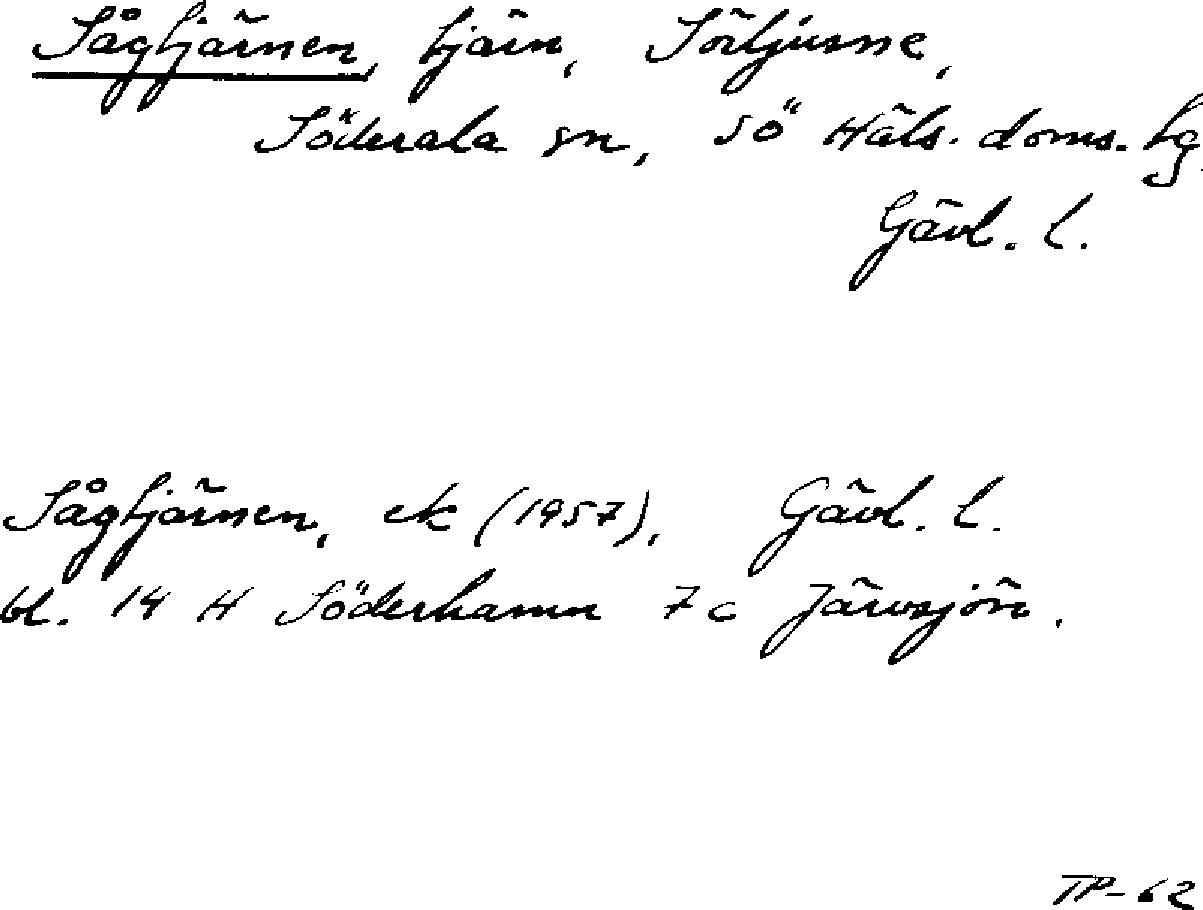 Sågtjärnen, tjärn, Sörljusne,
Söderala sn, Sö Häls. doms. tg.
Gävl. l.
Sågtjärnen, ek (1957), Gävl. l.
bl. 14 H Söderhamn 7c Järvsjön.
TP-62